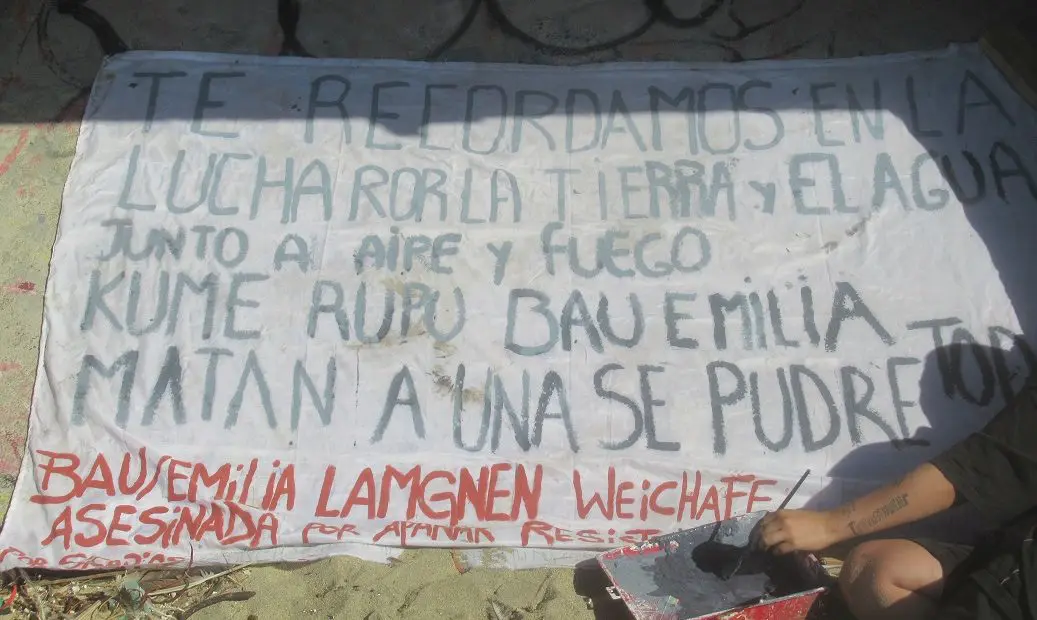 TE RECORDAMOS EN LA
LUCHA ROR LA TIERRA y EL AGUA
JUNTO A AIRE y FUEGO
KUME RUPU BAU EMILIA
MATAN A UNA SE PUDRE TOD
BAU/EMILIA LAMGNEN WEICHAFE
ASESINADA POR AFANAR RESIST
POR